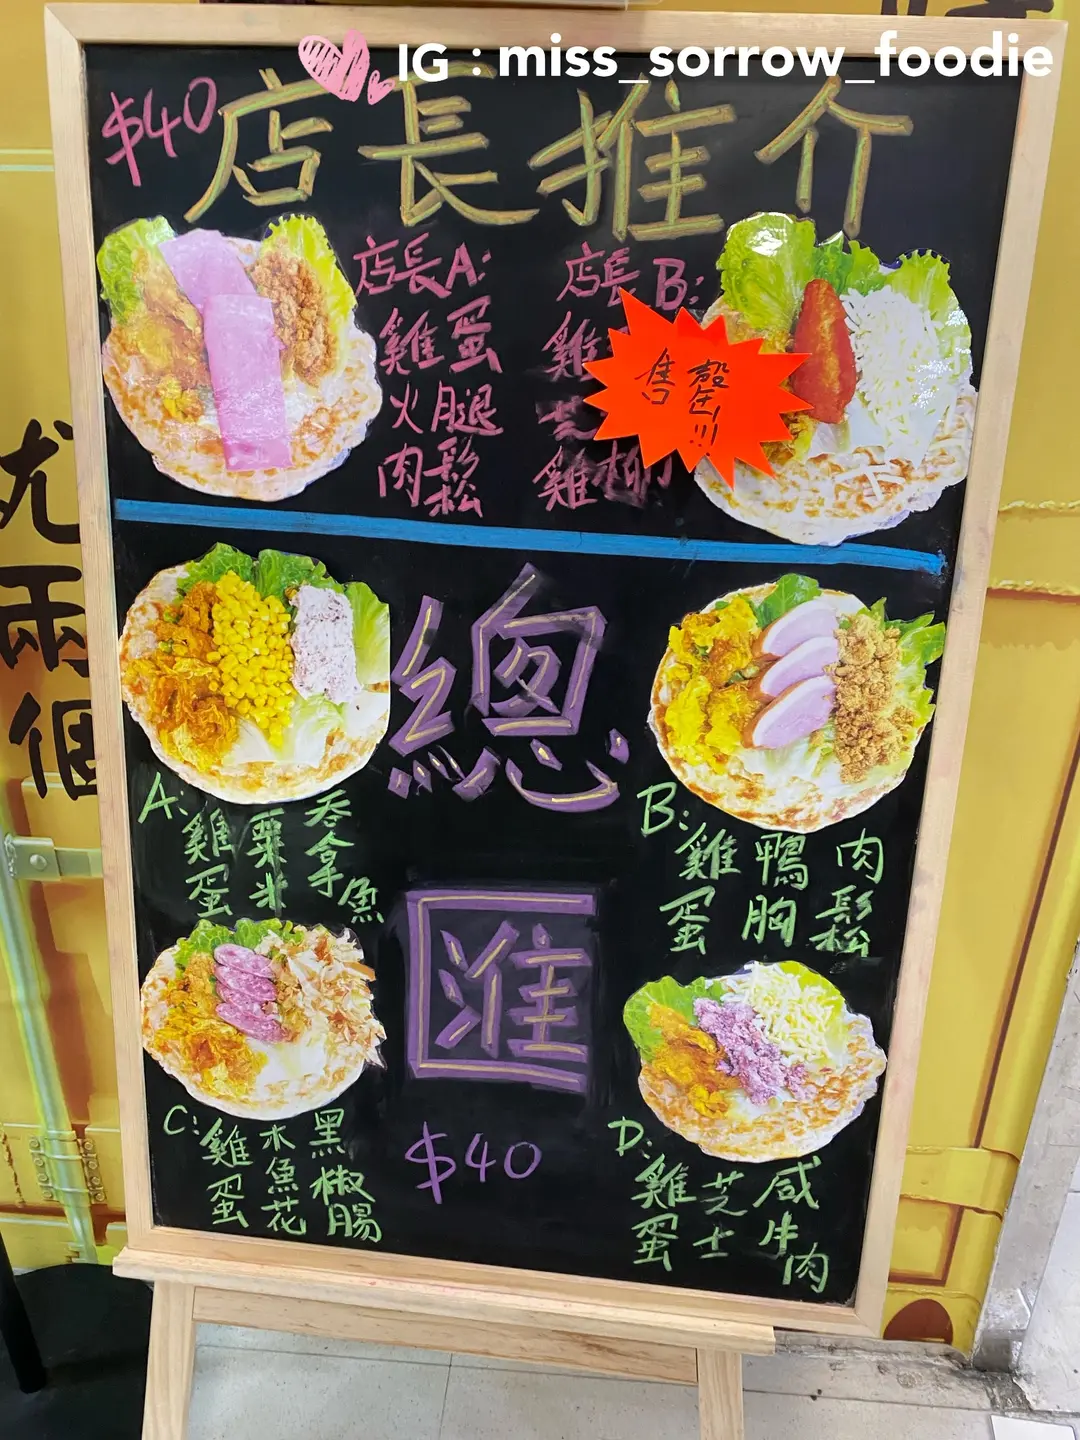 IG : miss_sorrow_foodie
$40
店長推介
店長A:
雞蛋
火腿
肉鬆
店長B:
雞
芝
雞柳
售罄!!!
總匯
$40
A:
雞蛋
粟米
吞拿魚
B:
雞蛋
鴨胸
肉鬆
C:
雞蛋
木魚花
黑椒腸
D:
雞蛋
芝士
咸牛肉
兩個